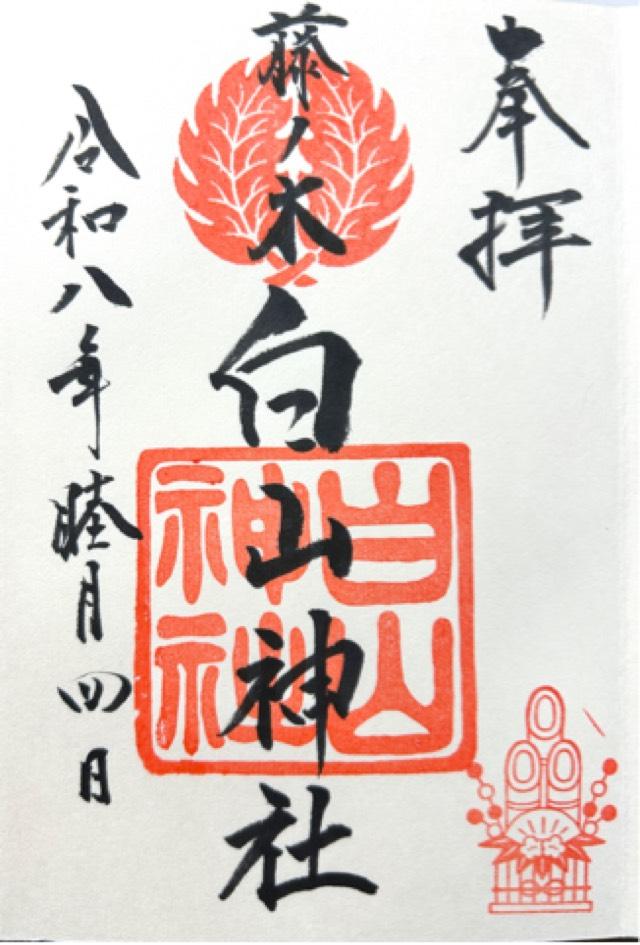 奉拝
藤ノ木
白山神社
白山神社
令和八年睦月四日